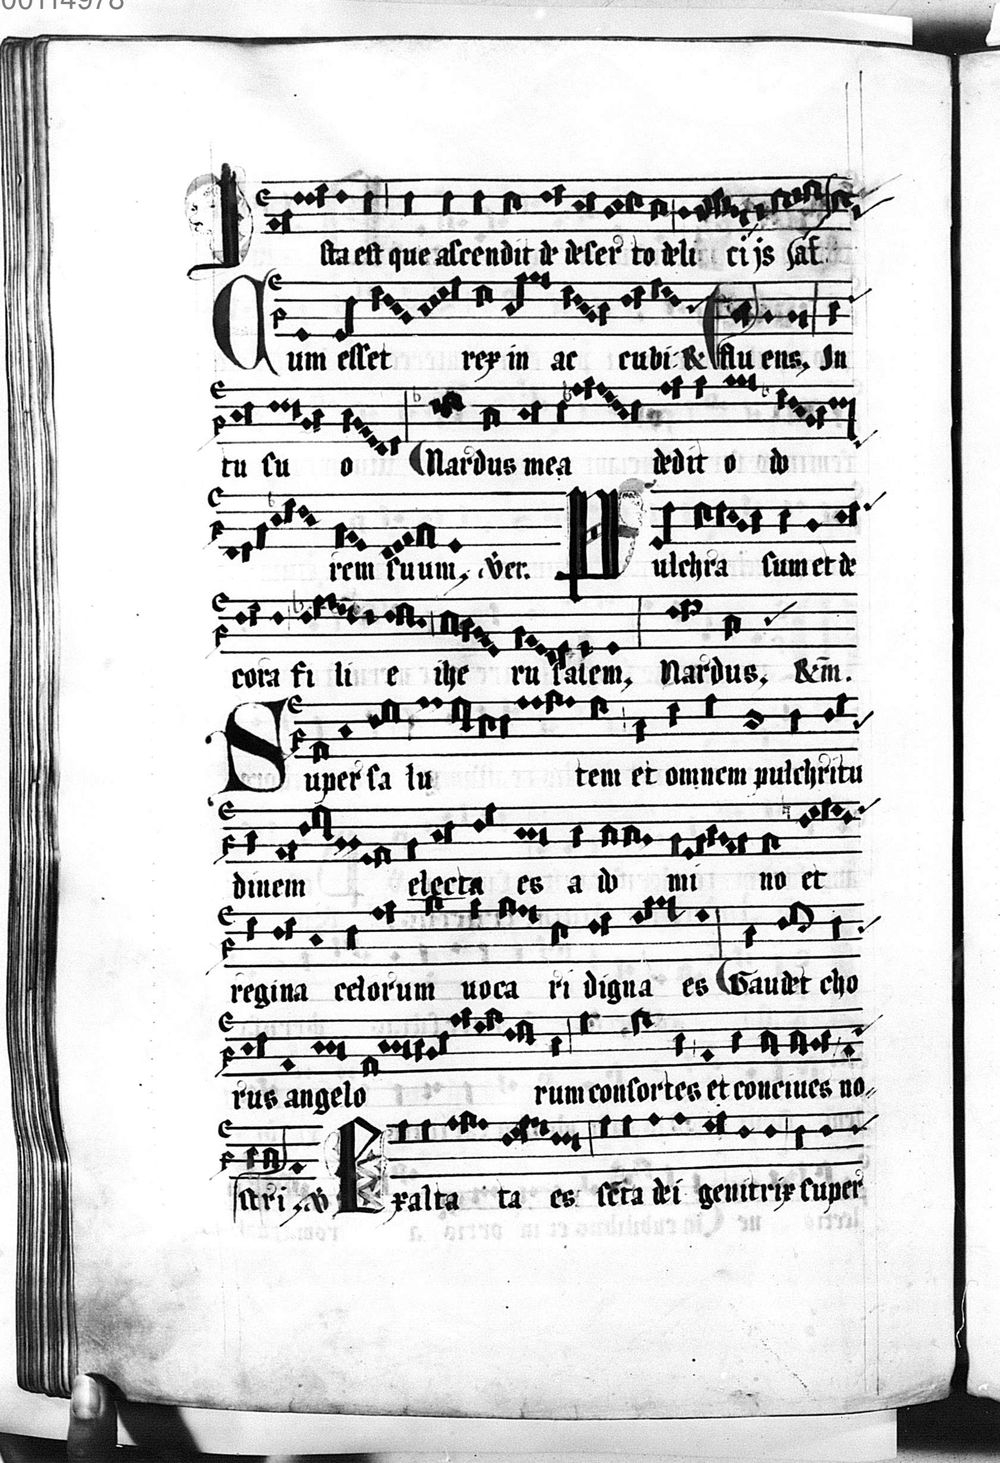 00114978
Ista est que ascendit de deser to deli cijs af.
Cum esset rex in ac cubi & flu ens, In
tu su o Nardus mea dedit o do
rem suum, Ver. Pulchra sum et de
cora fi li e ihe ru salem, Nardus, &m̄.
Super sa lu tem et omnem pulchritu
dinem electa es a do mi no et
regina celorum uoca ri digna es Gaudet cho
rus angelo rum consortes et conciues no
stri, V Exalta ta es scta dei genitrix super